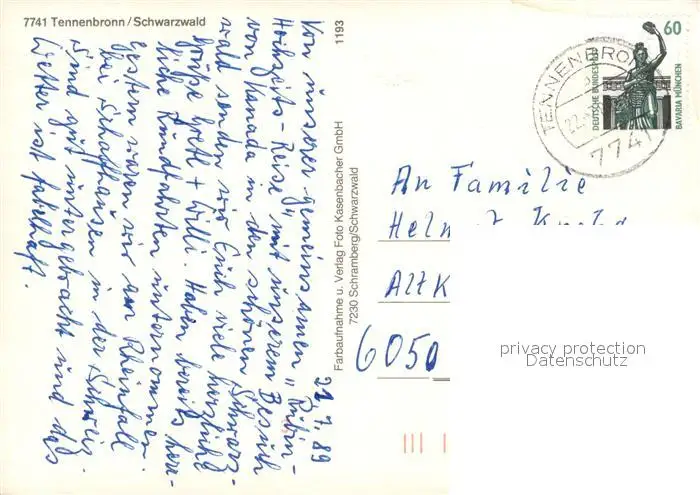 7741 Tennenbronn / Schwarzwald
21.7.89
Von unserer gemeinsamen "Rubin-
Hochzeits-Reise" mit unserem Besuch
von Kanada in den schönen Schwarz-
wald senden wir Euch viele herzliche
Grüße Gretl + Willi. Haben bereits herr-
liche Rundfahrten unternommen.
Gestern waren wir am Rheinfall
bei Schaffhausen in der Schweiz.
Sind gut untergebracht und das
Wetter ist fabelhaft.
1193
Farbaufnahme u. Verlag Foto Kasenbacher GmbH
7230 Schramberg/Schwarzwald
60
DEUTSCHE BUNDESPOST
BAVARIA MÜNCHEN
TENNENBRO
22.
7741
An Familie
6050
privacy protection
Datenschutz